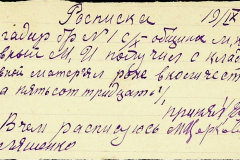 Росписка 19/IX
гадир бр № 1 с/х - община М.
вный М. И получил с клад
вной матерял роне в количест
а пятсот тридцать
принял
В чем расписуюсь
ляшенко